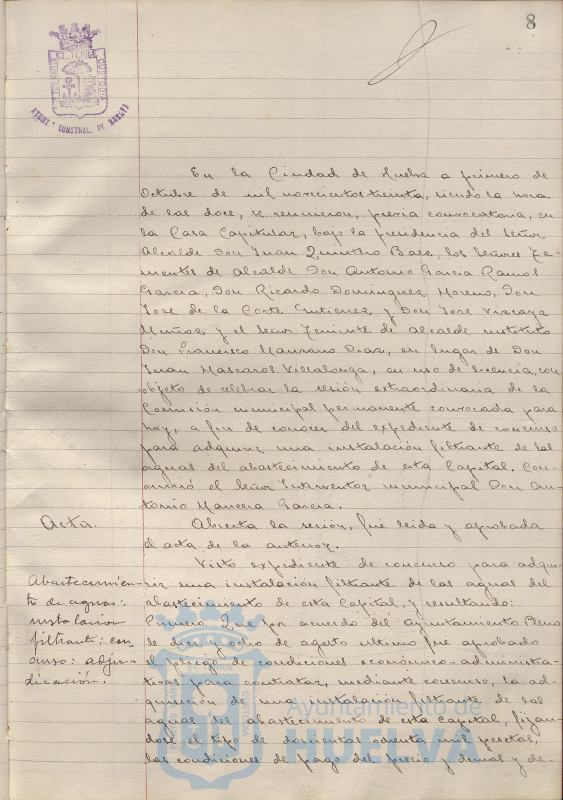 8
AYUNT. CONSTNAL. DE HUELVA
En la Ciudad de Huelva a primero de
Octubre de mil novecientos treinta, siendo la hora
de las doce, se reunieron, previa convocatoria, en
la Casa Capitular, bajo la presidencia del Señor
Alcalde Don Juan Quintero Baez, los Señores Te-
nientes de Alcalde Don Antonio Garcia Ramos
Garcia, Don Ricardo Dominguez Moreno, Don
Jose de la Corte Gutierrez, y Don Jose Vizcaya
Muñoz y el Señor Teniente de Alcalde sustituto
Don Francisco Manzano Diaz, en lugar de Don
Juan Mascaros Villalonga, en uso de licencia, con
objeto de celebrar la sesión extraordinaria de la
Comisión municipal permanente convocada para
hoy, a fin de conocer del expediente de concurso
para adquirir una instalación filtrante de las
aguas del abastecimiento de esta Capital. Con-
currió el Señor Interventor municipal Don An-
tonio Mancera Garcia.
Acta. Abierta la sesión, fué leida y aprobada
el acta de la anterior.
Visto expediente de concurso para adqui-
Abastecimien- rir una instalación filtrante de las aguas del
to de aguas: abastecimiento de esta Capital, y resultando:
instalacion Primero. Que por acuerdo del Ayuntamiento Pleno
filtrante: con- de diez y ocho de agosto ultimo fué aprobado
curso: adju- el pliego de condiciones económico-administra-
dicación. tivas para contratar, mediante concurso, la ad-
quisición de una instalación filtrante de las
aguas del abastecimiento de esta Capital, fijan-
dose el tipo de doscientas ochenta mil pesetas,
las condiciones de pago del precio y demas y de-
Ayuntamiento de
HUELVA